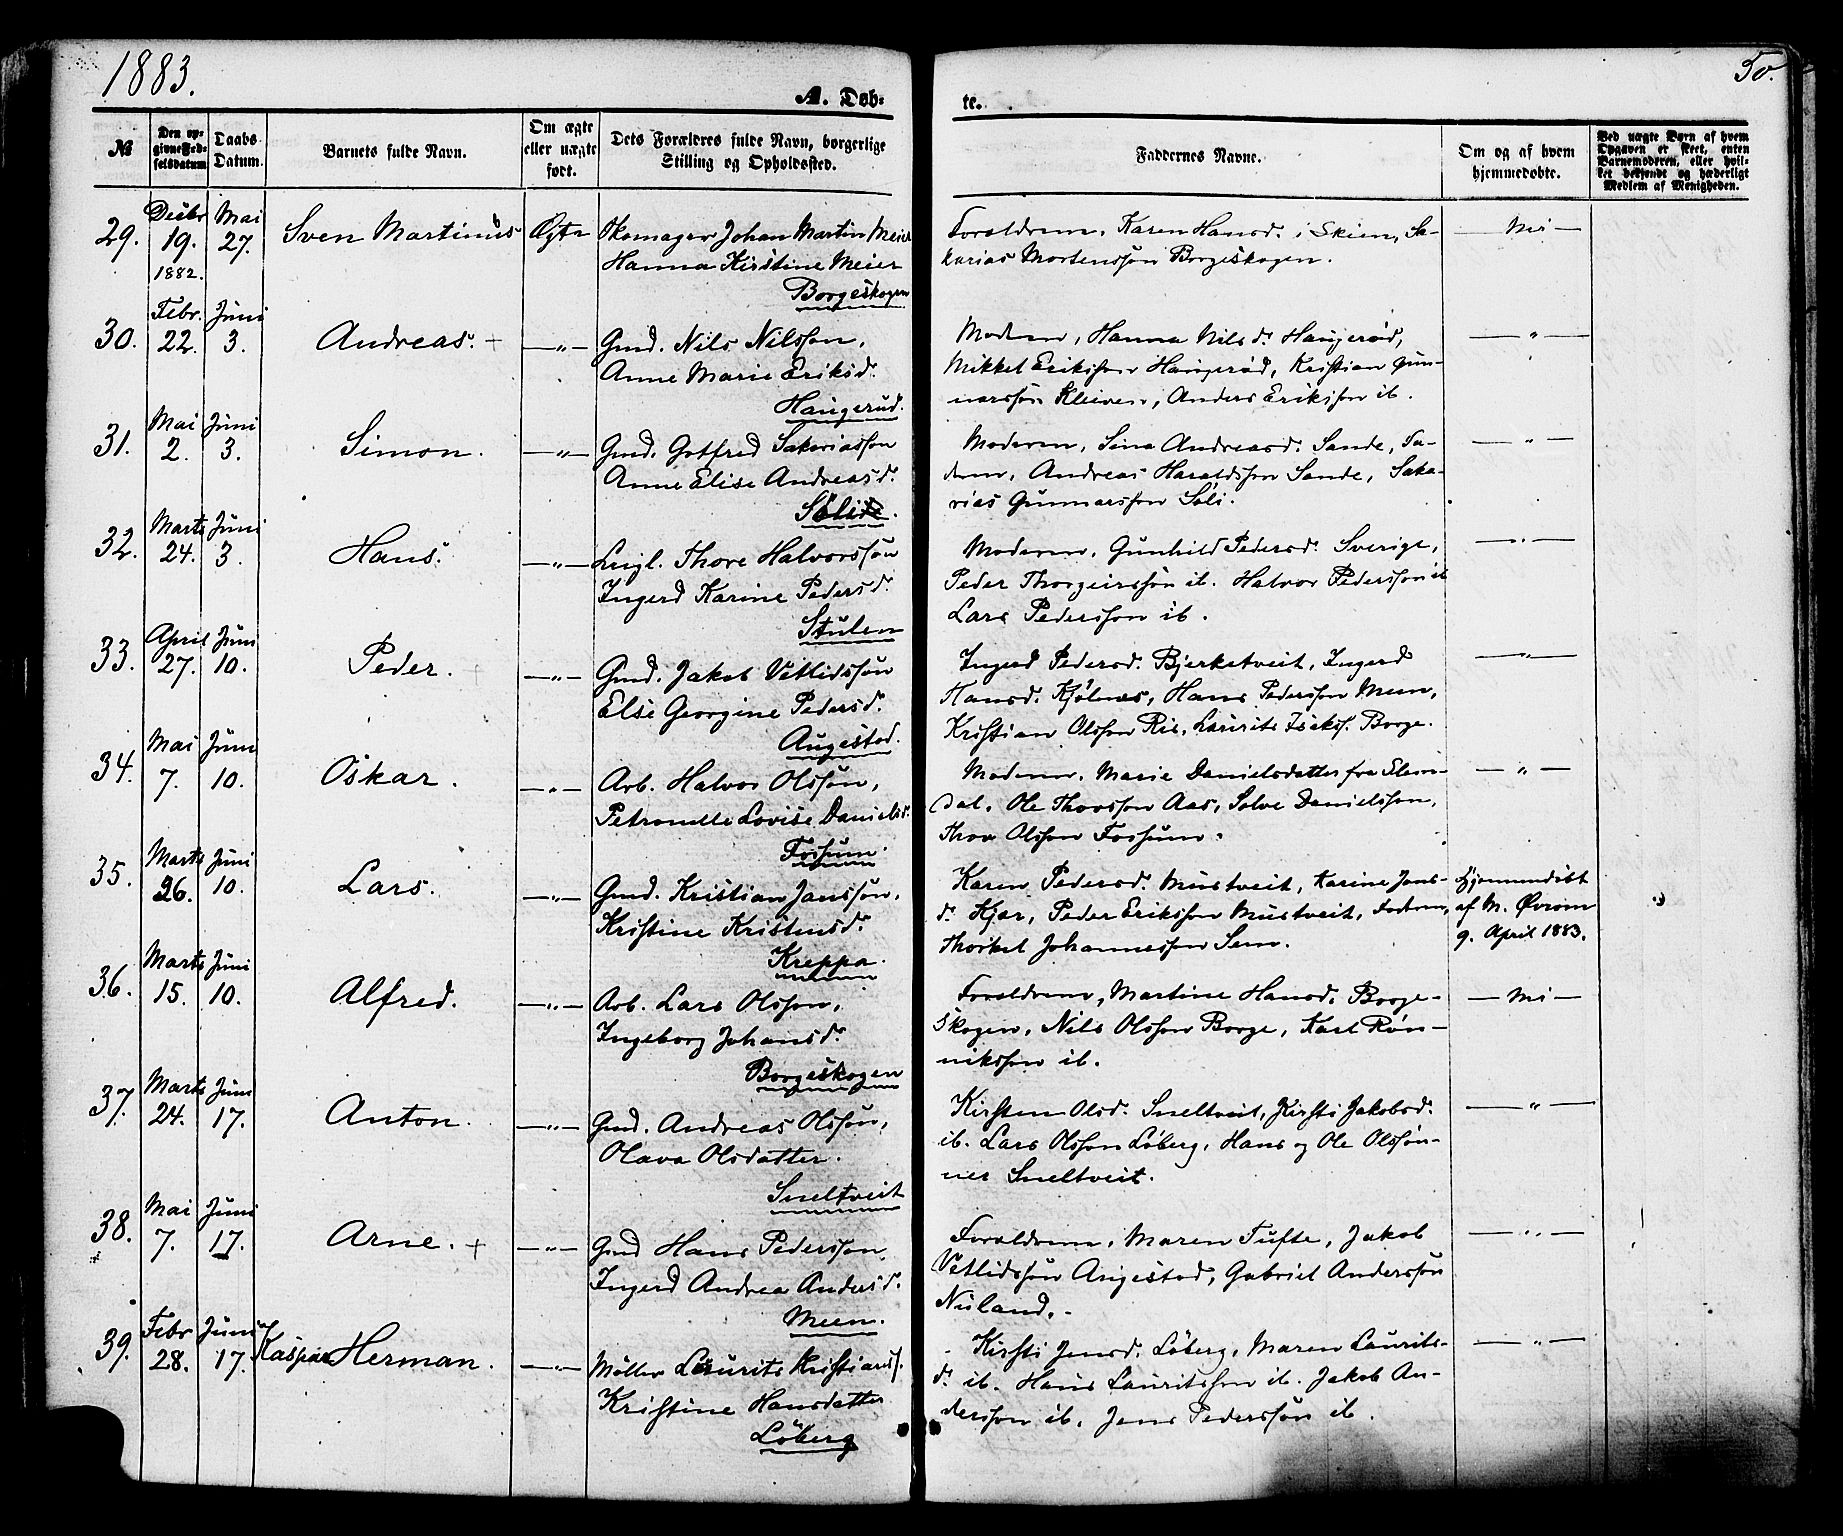 1883.
50.
A. Døb-
te.
№
Den op-
givne Fød-
selsdatum
Daabs-
Datum.
Barnets fulde Navn.
Om ægte
eller uægte
født.
Dets Forældres fulde Navn, borgerlige
Stilling og Opholdssted.
Faddernes Navne.
Om og af hvem
hjemmedøbte.
Ved uægte Barn af hvem
Opgaven er skeet, enten
Barnemoderen, eller hvil-
ket bekjendt og hæderligt
Medlem af Menigheden.
29.
Decbr
19.
1882.
Mai
27.
Sven Martinus
Ægte
Skomager Johan Martin Meier
Hanna Kirstine Meier
Borgeskogen
Forældrene, Karen Hansd. i Skien, Sa-
karias Mortenssøn Borgeskogen.
— Nei —
30.
Febr.
22.
Juni
3.
Andreas. +
— " —
Gmd. Nils Nilssøn,
Anne Marie Eriksd.
Haugerud.
Moderen, Hanna Nilsd. Haugerød,
Mikkel Erikssøn Haugerød, Kristian Gun-
narssøn Kleiven, Anders Erikssøn ib.
— " —
31.
Mai
2.
Juni
3.
Simon.
— " —
Gmd. Gotfred Sakariassøn
Anne Elise Andreasd.
Moderen, Sina Andreasd. Sande, Fa-
deren, Andreas Haraldssøn Sande, Saka-
rias Gunnarssøn Soli.
— " —
32.
Marts
24.
Juni
3.
Hans.
— " —
Leigl. Thore Halvorssøn
Ingerd Karine Pedersd.
Stulen
Moderen, Gunhild Pedersd. Sverige,
Peder Thorgeirssøn ib. Halvor Pederssøn ib
Lars Pederssøn ib.
— " —
33.
April
27.
Juni
10.
Peder.
— " —
Gmd. Jakob Vetlidssøn
Else Georgine Pedersd.
Augestad.
Ingerd Pedersd. Bjerketveit, Ingerd
Hansd. Kjølnes, Hans Pederssøn Meen,
Kristian Olssøn Ris, Laurits Isakss. Borge.
— " —
34.
Mai
7.
Juni
10.
Oskar.
— " —
Arb. Halvor Olssøn,
Petronelle Lovise Danielsd.
Fossum.
Moderen, Marie Danielsdatter fra
dal, Ole Thorssøn Aas, Solve Danielssøn,
Thor Olssøn Fossum.
— " —
35.
Marts
26.
Juni
10.
Lars.
— " —
Gmd. Kristian Janssøn,
Kristine Kristensd.
Kreppa.
Karen Pedersd. Mustveit, Karine Jans-
d. Kjær, Peder Erikssøn Mustveit, Faderen,
Thorkel Johannessøn Sem.
Hjemmedøbt
af M. Øvrom
9. April 1883.
36.
Marts
15.
Juni
10.
Alfred.
— " —
Arb. Lars Olssøn,
Ingeborg Johansd.
Borgeskogen
Forældrene, Martine Hansd. Borge-
skogen, Nils Olssøn Borge, Karl Røn-
nikssøn ib.
— Nei —
37.
Marts
24.
Juni
17.
Anton.
— " —
Gmd. Andreas Olssøn,
Olava Olsdatter.
Sneltveit
Kirsten Olsd. Sneltveit, Kirsti Jakobsd.
ib. Lars Olssøn Løberg, Hans og Ole Olssøn-
ner Sneltveit.
— " —
38.
Mai
7.
Juni
17.
Arne. +
— " —
Gmd Hans Pederssøn
Ingerd Andrea Andersd.
Meen.
Forældrene, Maren Tufte, Jakob
Vetlidssøn Augestad, Gabriel Anderssøn
Nuland.
— " —
39.
Febr
28.
Juni
17.
Kaspar Herman.
— " —
Møller Laurits Kristianss.
Kristine Hansdatter
Løberg
Kirsti Jensd. Løberg, Maren Laurits-
d. ib. Hans Lauritssøn ib. Jakob An-
derssøn ib. Jens Pederssøn ib.
— " —